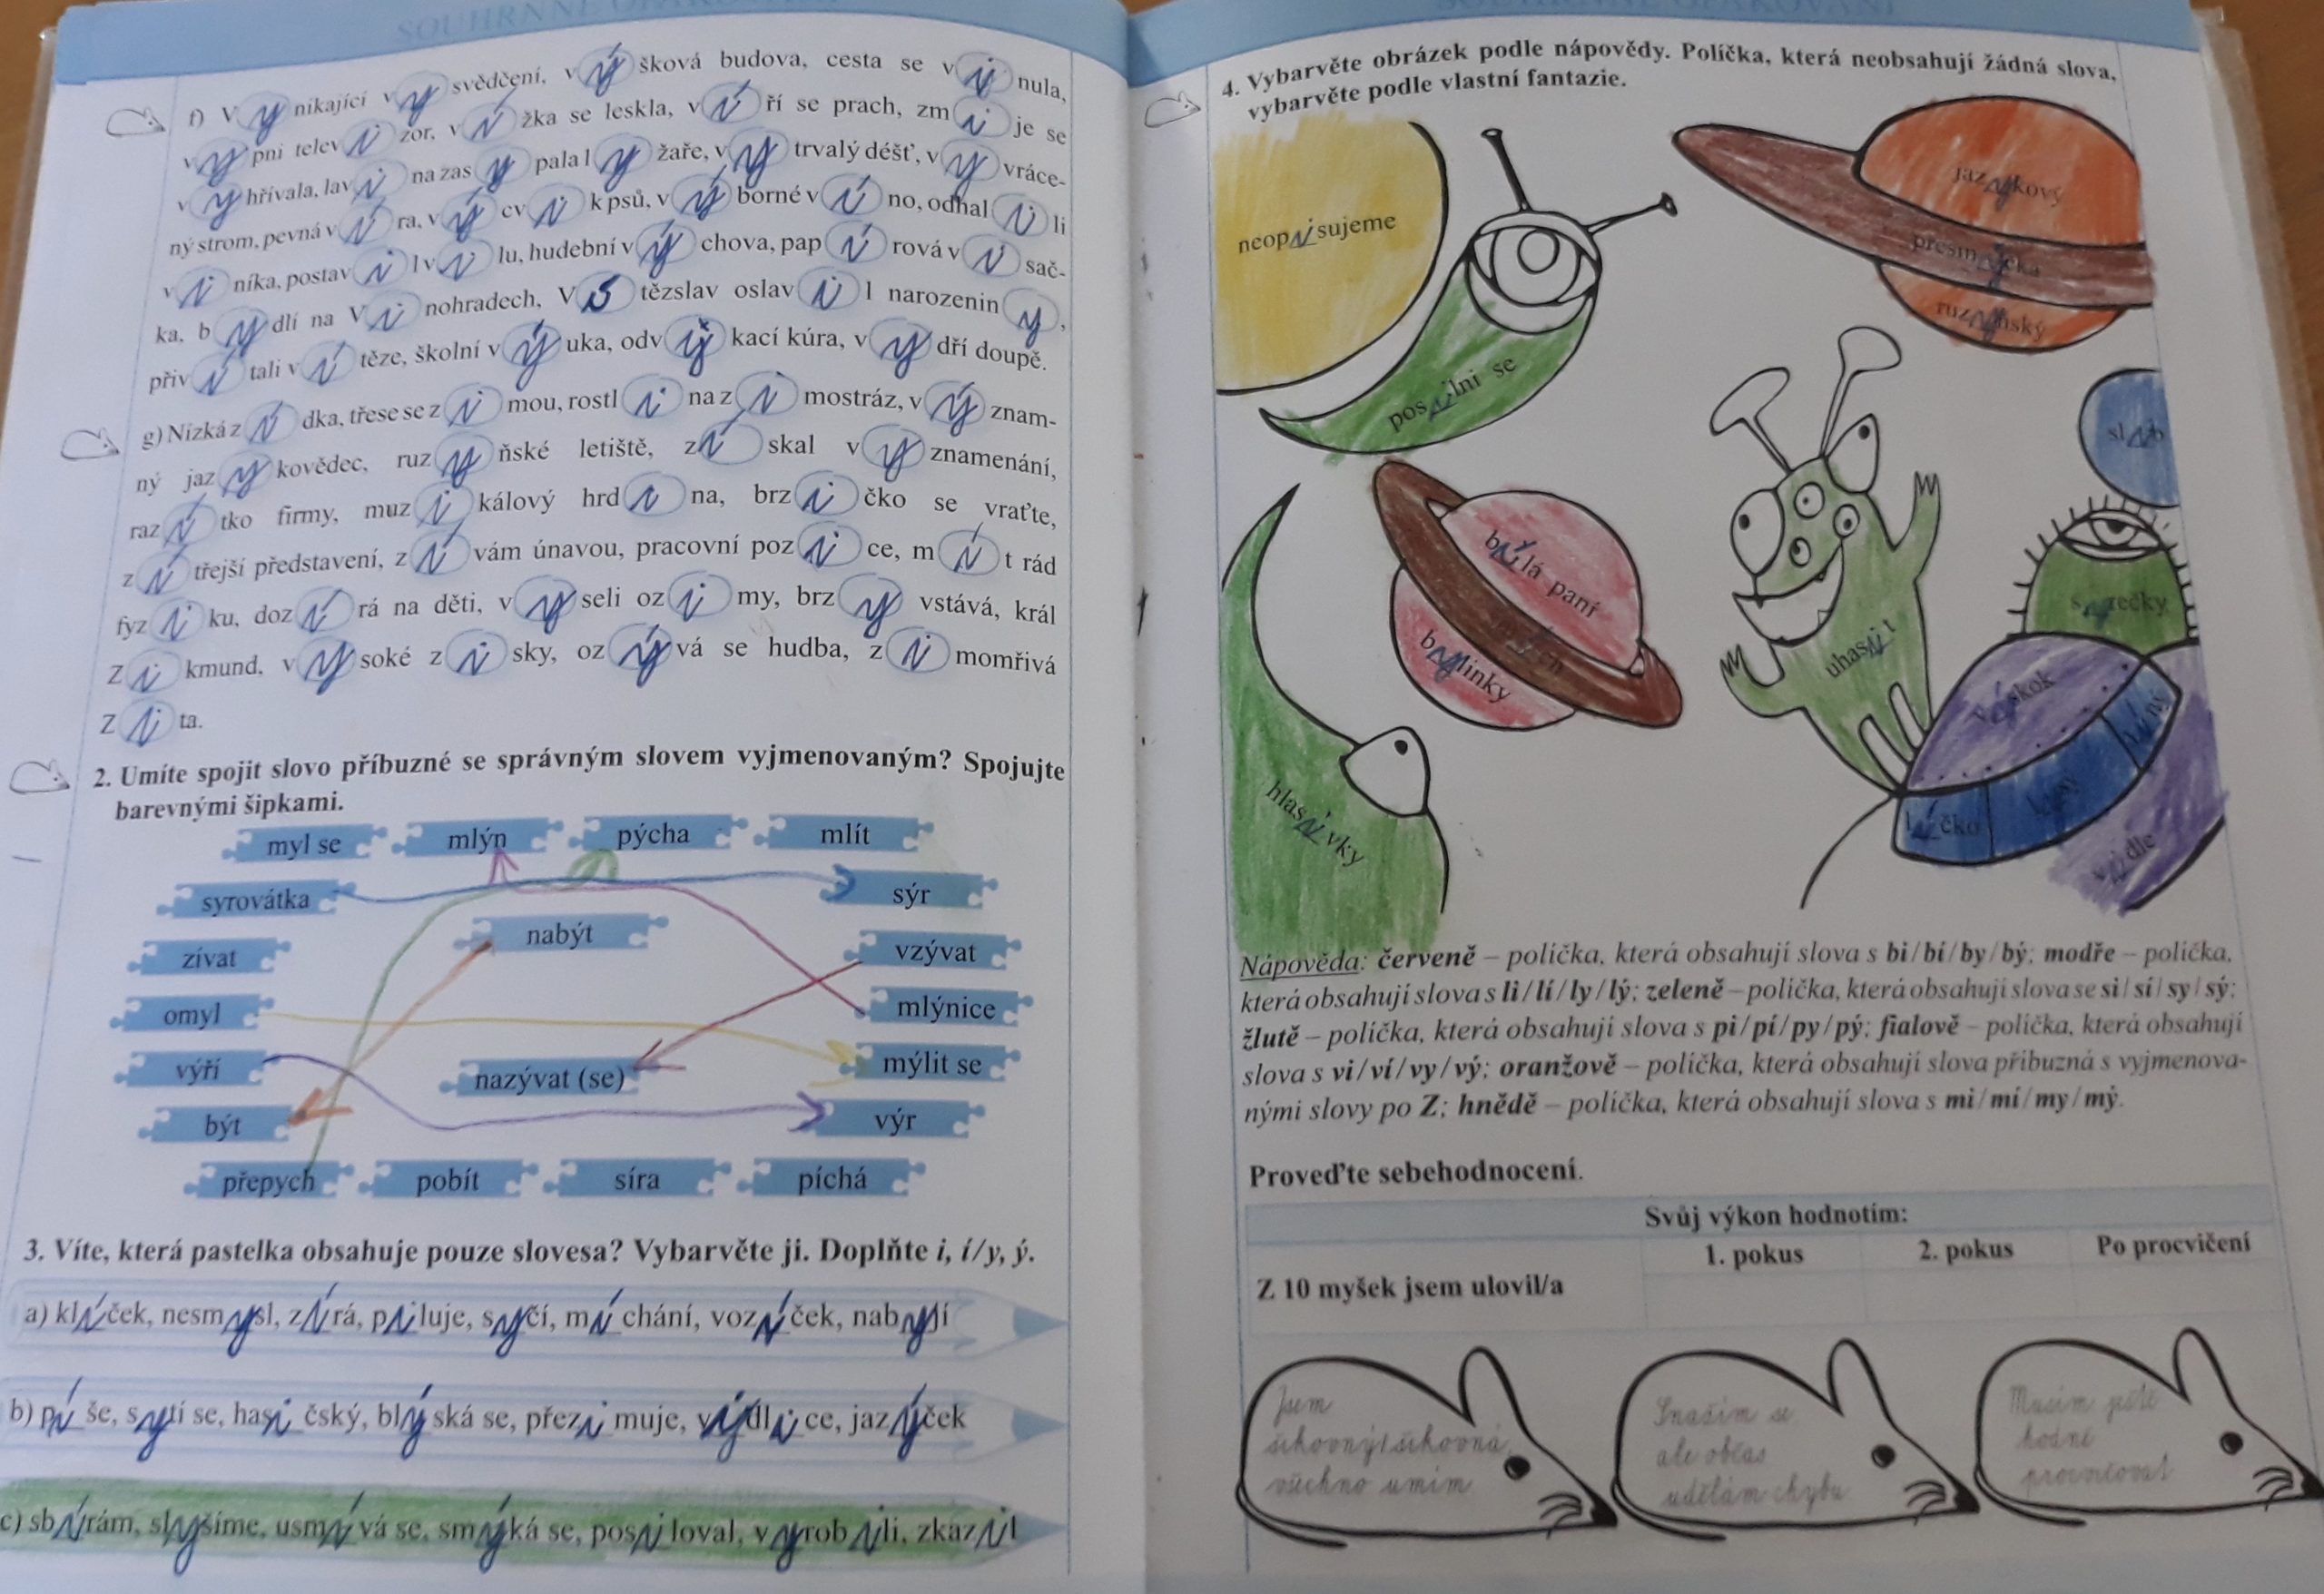 SOUHRNNÉ OPAKOVÁNÍ
f) Vynikající vysvědčení, výšková budova, cesta se vinula,
vypni televizor, vížka se leskla, víří se prach, zmije se
vyhřívala, lavina zasypala lyžaře, vytrvalý déšť, vyvráce-
ný strom, pevná víra, výcvik psů, výborné víno, odhalili
viníka, postavil vilu, hudební výchova, papírová visač-
ka, bydlí na Vinohradech, Vítězslav oslavil narozeniny,
přivítali vítěze, školní výuka, odvykací kúra, vydří doupě.
g) Nízká zídka, třese se zimou, rostlina zimostráz, význam-
ný jazykovědec, ruzyňské letiště, získal vyznamenání,
razítko firmy, muzikálový hrdina, brzičko se vraťte,
zítřejší představení, zívám únavou, pracovní pozice, mít rád
fyziku, dozírá na děti, vyseli ozimy, brzy vstává, král
Zikmund, vysoké zisky, ozývá se hudba, zimomřivá
Zita.
2. Umíte spojit slovo příbuzné se správným slovem vyjmenovaným? Spojujte
barevnými šipkami.
myl se mlýn pýcha mlít
syrovátka sýr
nabýt
zívat vzývat
omyl mlýnice
výří nazývat (se) mýlit se
být výr
přepych pobít síra píchá
3. Víte, která pastelka obsahuje pouze slovesa? Vybarvěte ji. Doplňte i, í/y, ý.
a) klíček, nesmysl, zírá, piluje, syčí, míchání, vozíček, nabyjí
b) píše, sytí se, hasičský, blýská se, přezimuje, výdlice, jazýček
c) sbírám, slyšíme, usmívá se, smýká se, posiloval, vyrobili, zkazil
SOUHRNNÉ OPAKOVÁNÍ
4. Vybarvěte obrázek podle nápovědy. Políčka, která neobsahují žádná slova,
vybarvěte podle vlastní fantazie.
jazykový
neopisujeme
přesmyčka
ruzyňský
posilni se
slib
bílá paní
sýrečky
bylinky
uhasit
výskok
líný
hlasivky
líčko
vidle
Nápověda: červeně – políčka, která obsahují slova s bi/bí/by/bý; modře – políčka,
která obsahují slova s li/lí/ly/lý; zeleně – políčka, která obsahují slova se si/sí/sy/sý;
žlutě – políčka, která obsahují slova s pi/pí/py/pý; fialově – políčka, která obsahují
slova s vi/ví/vy/vý; oranžově – políčka, která obsahují slova příbuzná s vyjmenova-
nými slovy po Z; hnědě – políčka, která obsahují slova s mi/mí/my/mý.
Proveďte sebehodnocení.
Svůj výkon hodnotím:
1. pokus 2. pokus Po procvičení
Z 10 myšek jsem ulovil/a
Jsem
šikovný/šikovná,
všechno umím.
Snažím se,
ale občas
udělám chybu.
Musím ještě
hodně
procvičovat.